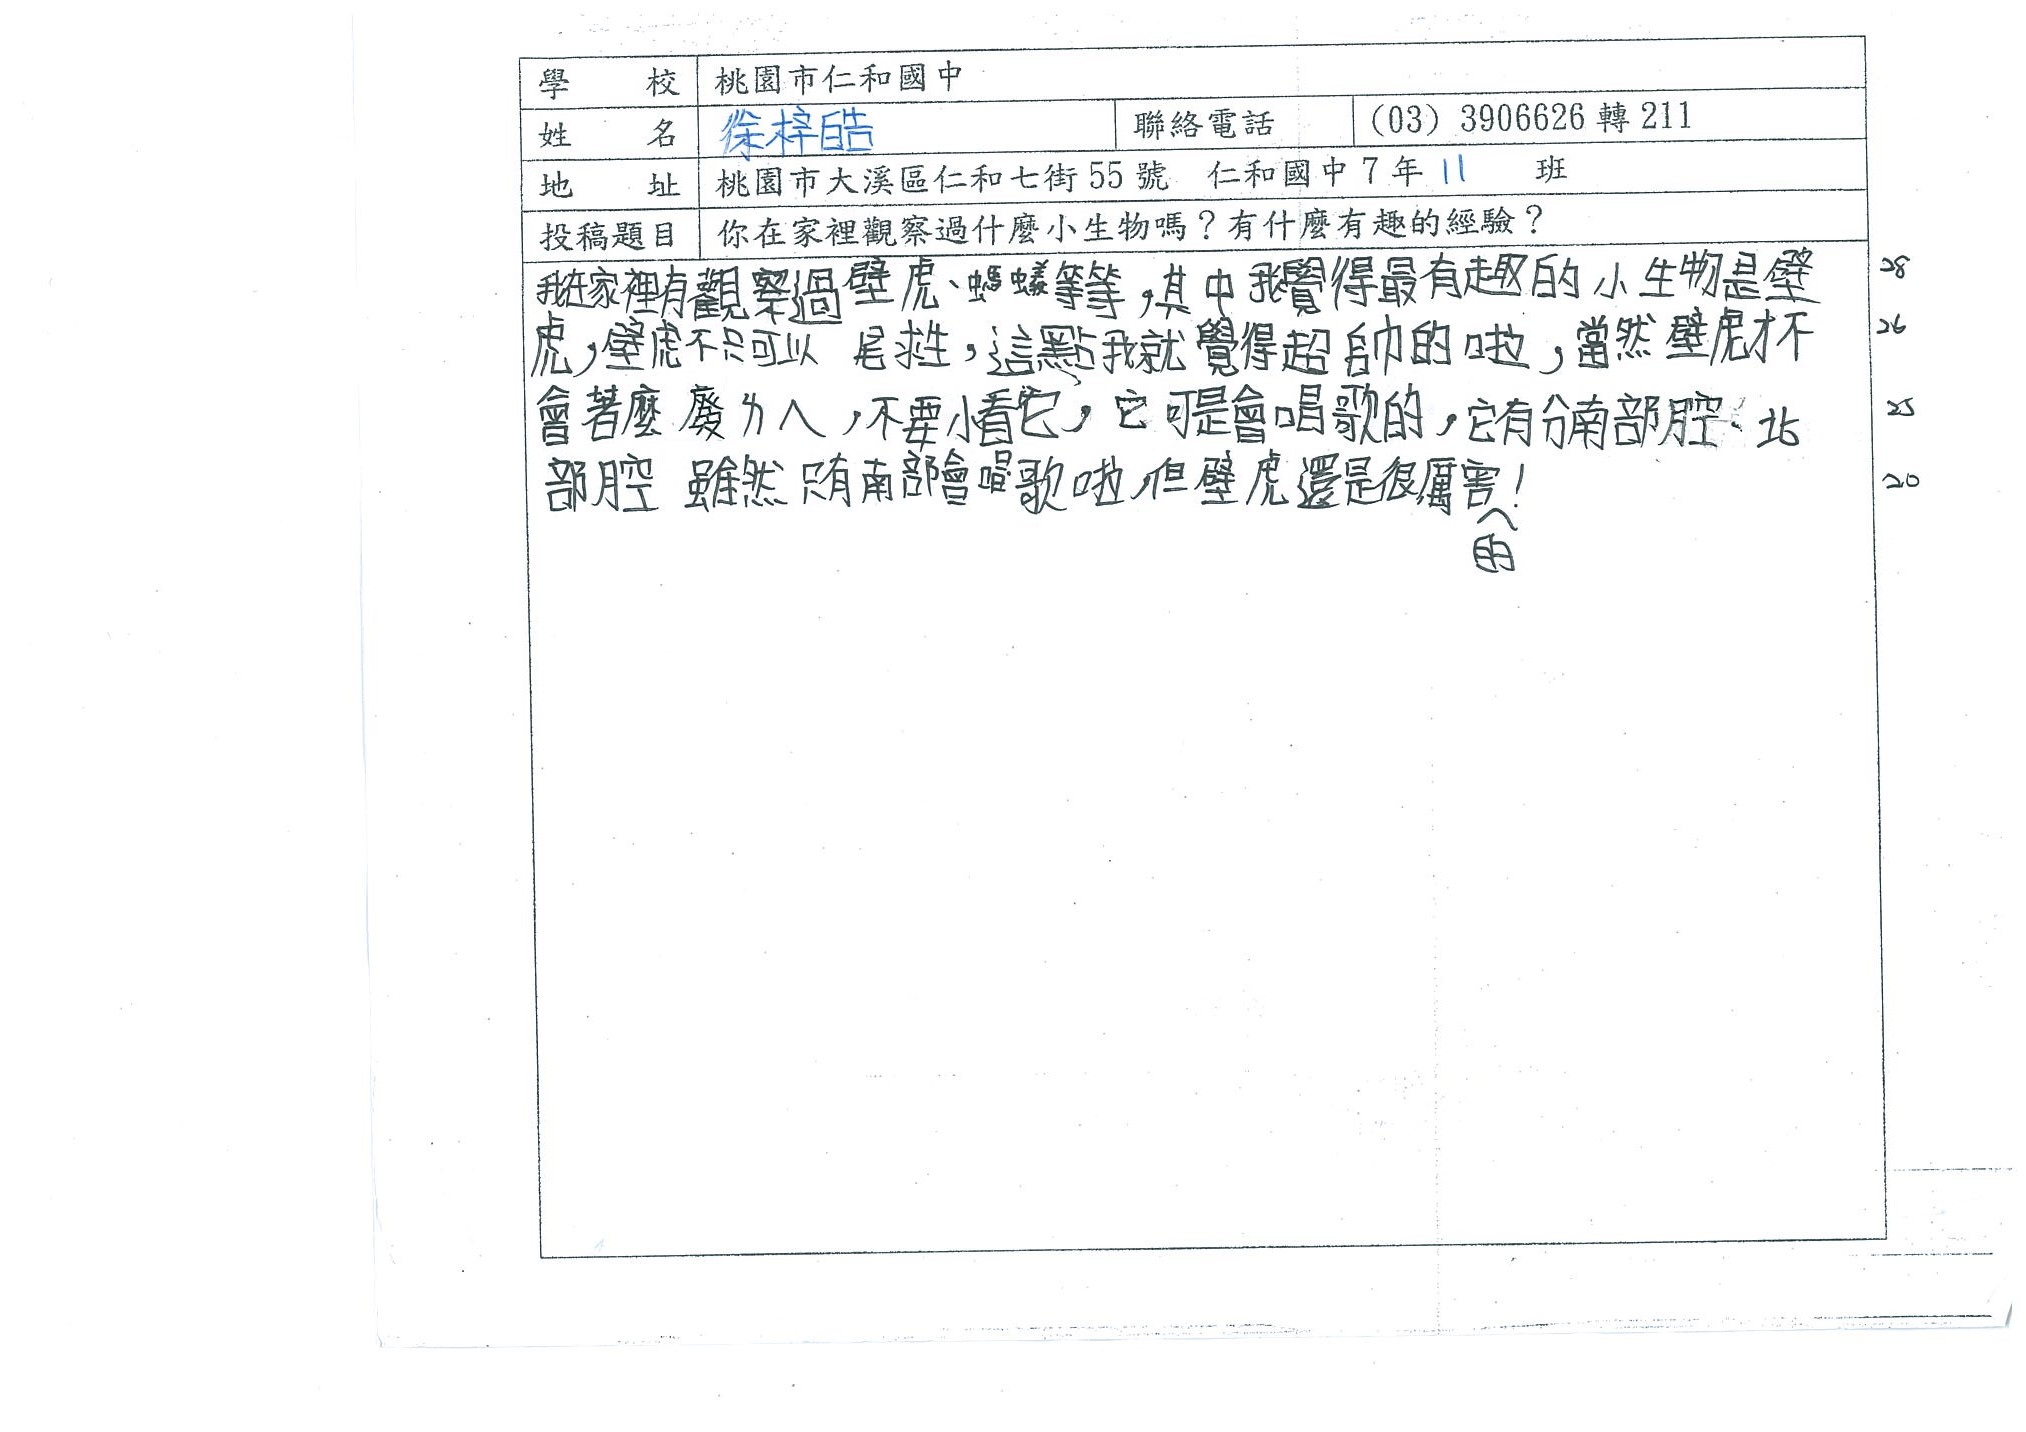 學 校 桃園市仁和國中
姓 名 徐梓皓 聯絡電話 (03) 3906626 轉 211
地 址 桃園市大溪區仁和七街 55 號 仁和國中 7 年 11 班
投稿題目 你在家裡觀察過什麼小生物嗎？有什麼有趣的經驗？
我在家裡有觀察過壁虎、螞蟻等等，其中我覺得最有趣的小生物是壁 28
虎，壁虎不只可以 尾求生，這點我就覺得超帥的啦，當然壁虎才不 26
會著麼廢ㄌㄟ，不要小看它，它可是會唱歌的，它有分南部腔、北 25
部腔 雖然只有南部會唱歌啦，但壁虎還是很厲害！ 20
的